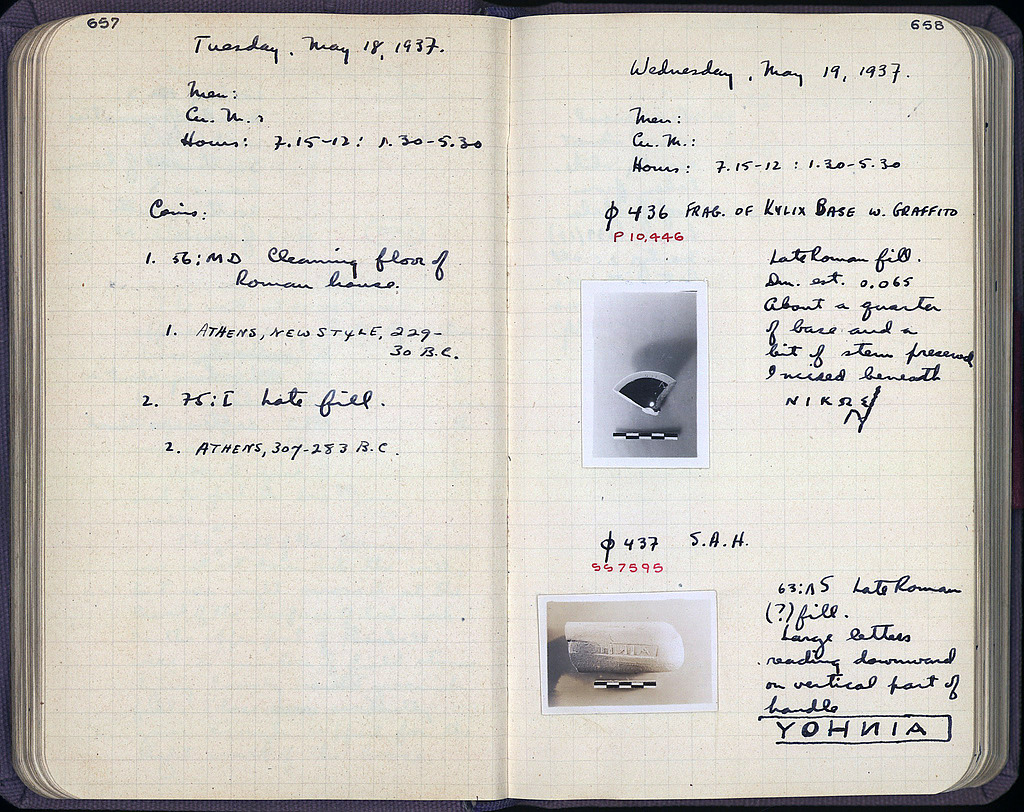 657
Tuesday, May 18, 1937.
Men:
Cu. M.:
Hours: 7.15-12: 1.30-5.30
Coins:
1. 56:MD Cleaning floor of
Roman house.
1. ATHENS, NEW STYLE, 229-
30 B.C.
2. 75:I Late fill.
2. ATHENS, 307-283 B.C.
658
Wednesday, May 19, 1937.
Men:
Cu. M.:
Hours: 7.15-12 : 1.30-5.30
φ 436 FRAG. OF KYLIX BASE W. GRAFFITO
P 10,446
Late Roman fill.
Dm. est. 0.065
About a quarter
of base and a
bit of stem preserved
Incised beneath
ΝΙΚΩ
φ 437 S.A.H.
SS 7595
63:ΛS Late Roman
(?) fill.
Large letters
reading downward
on vertical part of
handle
YOHИIA